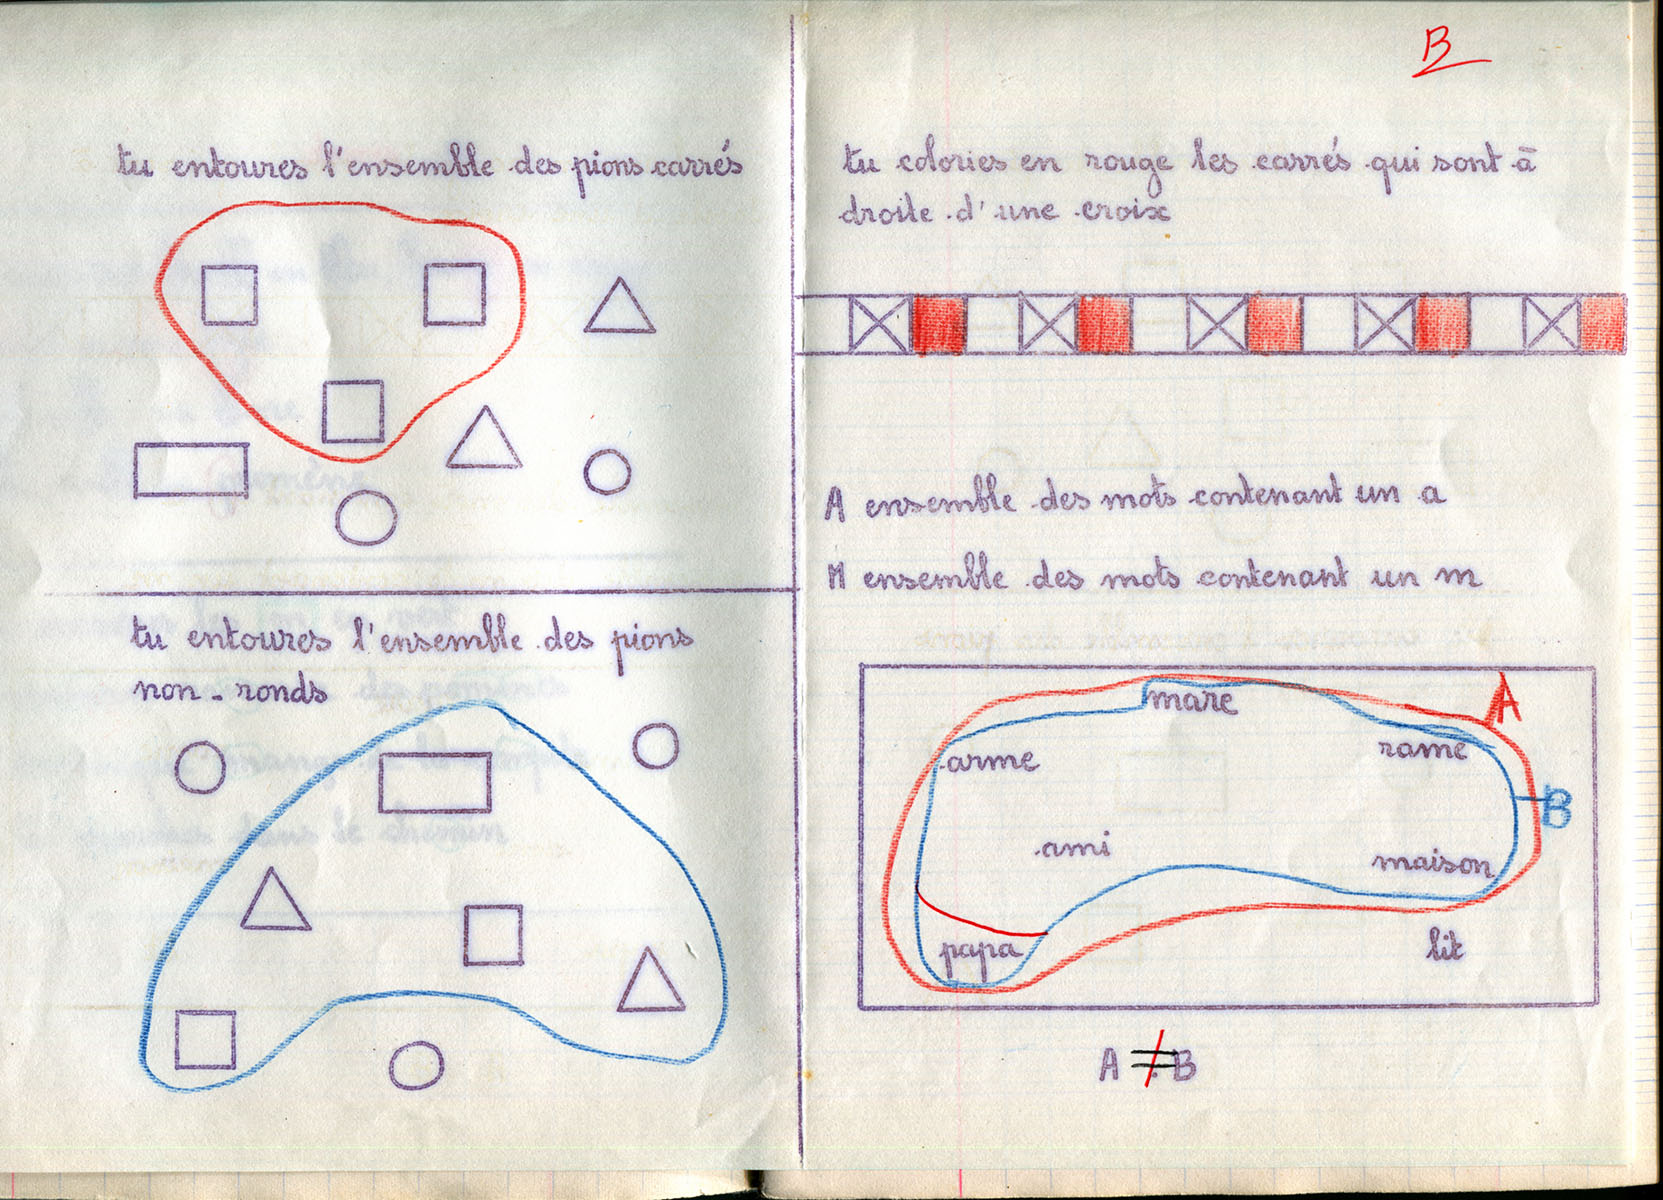 tu entoures l'ensemble des pions carrés
tu entoures l'ensemble des pions
non-ronds
B
tu colories en rouge les carrés qui sont à
droite d'une croix
A ensemble des mots contenant un a
M ensemble des mots contenant un m
A
mare
arme
rame
B
ami
maison
papa
lit
A ≠ B